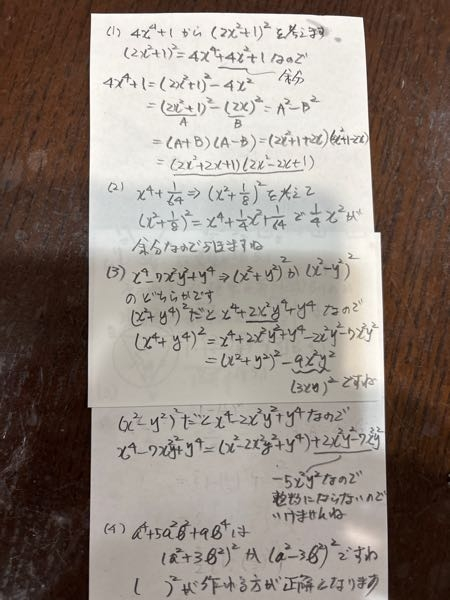 (1) 4x⁴+1 から (2x²+1)² を考えます
(2x²+1)² = 4x⁴+4x²+1 なので
余分
4x⁴+1 = (2x²+1)² - 4x²
= (2x²+1)² - (2x)² = A² - B²
A B
= (A+B)(A-B) = (2x²+1+2x)(2x²+1-2x)
= (2x²+2x+1)(2x²-2x+1)
(2) x⁴+1/64 ⇒ (x²+1/8)² を考えて
(x²+1/8)² = x⁴+1/4x²+1/64 で 1/4x²が
余分なので引きますね
(3) x⁴-7x²y²+y⁴ ⇒ (x²+y²)² か (x²-y²)²
のどちらかです
(x²+y⁴)² だと x⁴+2x²y⁴+y⁴ なので
(x⁴+y⁴)² = x⁴+2x²y²+y⁴-2x²y²-7x²y²
= (x²+y²)² - 9x²y²
(3xy)² ですね
(x²-y²)² だと x⁴-2x²y²+y⁴ なので
x⁴-7x²y²+y⁴ = (x²-2x²y²+y⁴)+2x²y²-7x²y
-5x²y² なので
整数にならないので
いけませんね
(4) a⁴+5a²b²+9b⁴ は
(a²+3b²)² か (a²-3b²)² ですね
( )² が作れる方が正解となります